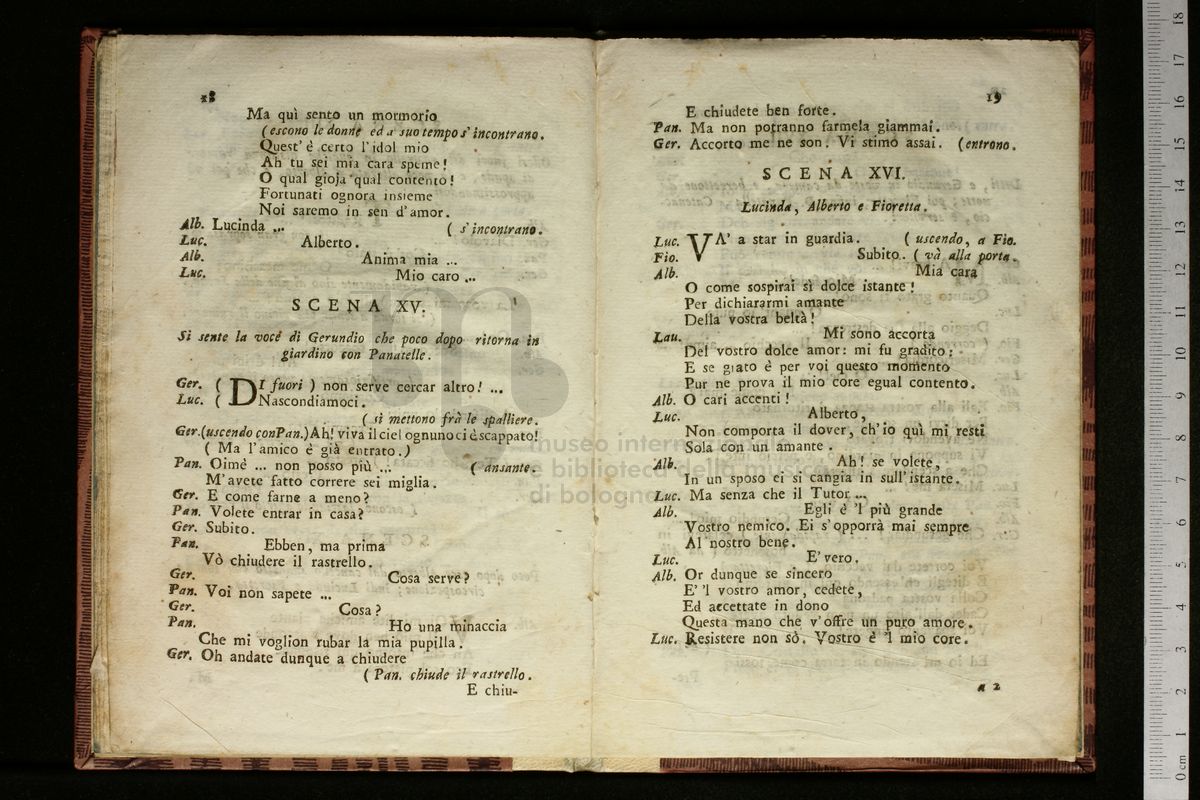 18
Ma quì sento un mormorio
(escono le donne ed a suo tempo s'incontrano.
Quest' è certo l'idol mio
Ah tu sei mia cara speme!
O qual gioja qual contento!
Fortunati ognora insieme
Noi saremo in sen d'amor.
Alb. Lucinda ... ( s'incontrano.
Luc. Alberto.
Alb. Anima mia ...
Luc. Mio caro ...
SCENA XV.
Si sente la voce di Gerundio che poco dopo ritorna in
giardino con Panatelle.
Ger. ( DI fuori ) non serve cercar altro! ...
Luc. ( Nascondiamoci.
( si mettono frà le spalliere.
Ger.(uscendo con Pan.)Ah! viva il ciel ognuno ci è scappato!
( Ma l'amico è già entrato.)
Pan. Oimè ... non posso più ... ( ansante.
M'avete fatto correre sei miglia.
Ger. E come farne a meno?
Pan. Volete entrar in casa?
Ger. Subito.
Pan. Ebben, ma prima
Vò chiudere il rastrello.
Ger. Cosa serve?
Pan. Voi non sapete ...
Ger. Cosa?
Pan. Ho una minaccia
Che mi voglion rubar la mia pupilla.
Ger. Oh andate dunque a chiudere
( Pan. chiude il rastrello.
E chiu-
19
E chiudete ben forte.
Pan. Ma non potranno farmela giammai.
Ger. Accorto me ne son. Vi stimo assai. (entrono.
SCENA XVI.
Lucinda, Alberto e Fioretta.
Luc. VA' a star in guardia. ( uscendo, a Fio.
Fio. Subito. ( và alla porta.
Alb. Mia cara
O come sospirai sì dolce istante!
Per dichiararmi amante
Della vostra beltà!
Lau. Mi sono accorta
Del vostro dolce amor: mi fu gradito:
E se grato è per voi questo momento
Pur ne prova il mio core egual contento.
Alb. O cari accenti!
Luc. Alberto,
Non comporta il dover, ch'io quì mi resti
Sola con un amante.
Alb. Ah! se volete,
In un sposo ei si cangia in sull'istante.
Luc. Ma senza che il Tutor ...
Alb. Egli è 'l più grande
Vostro nemico. Ei s'opporrà mai sempre
Al nostro bene.
Luc. E' vero.
Alb. Or dunque se sincero
E' 'l vostro amor, cedete,
Ed accettate in dono
Questa mano che v'offre un puro amore.
Luc. Resistere non sò. Vostro è 'l mio core.
a 2
museo internazionale
e biblioteca della musica
di bologna
0 cm 1 2 3 4 5 6 7 8 9 10 11 12 13 14 15 16 17 18